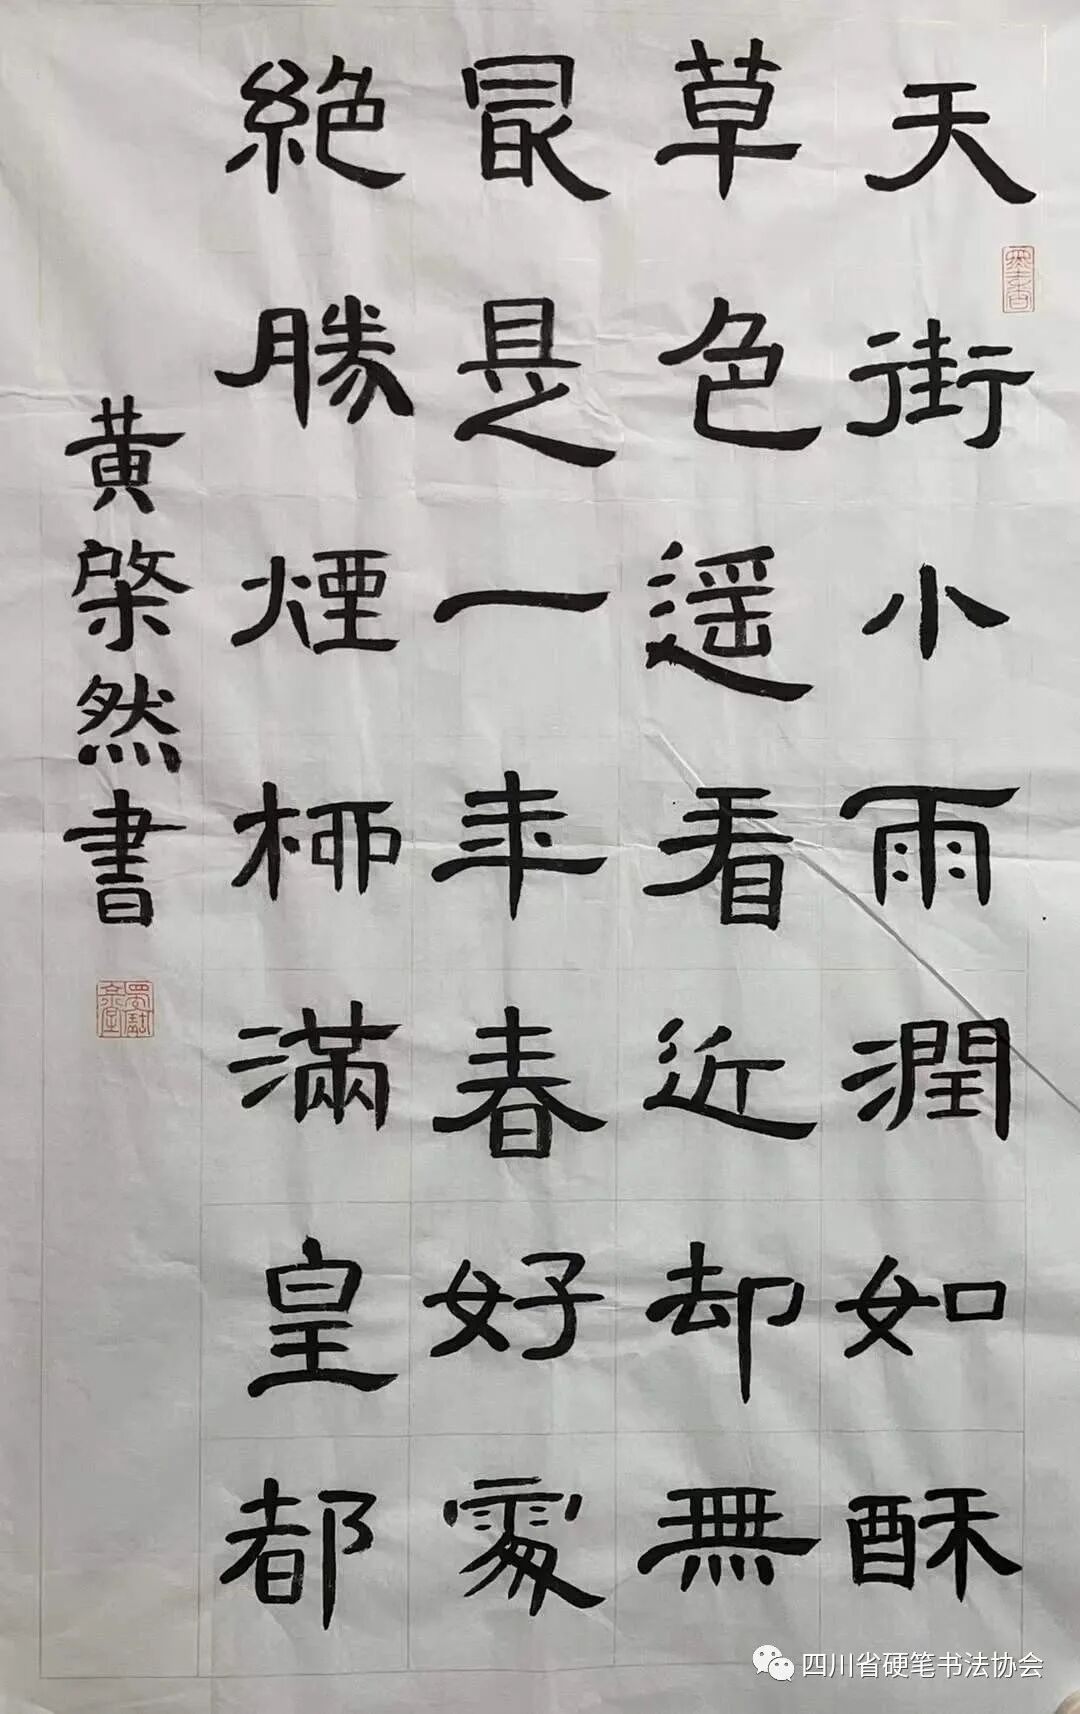 天街小雨潤如酥
草色遥看近却無
冣是一年春好處
絕勝煙柳滿皇都
黄棨然書
墨香
四川省硬笔书法协会